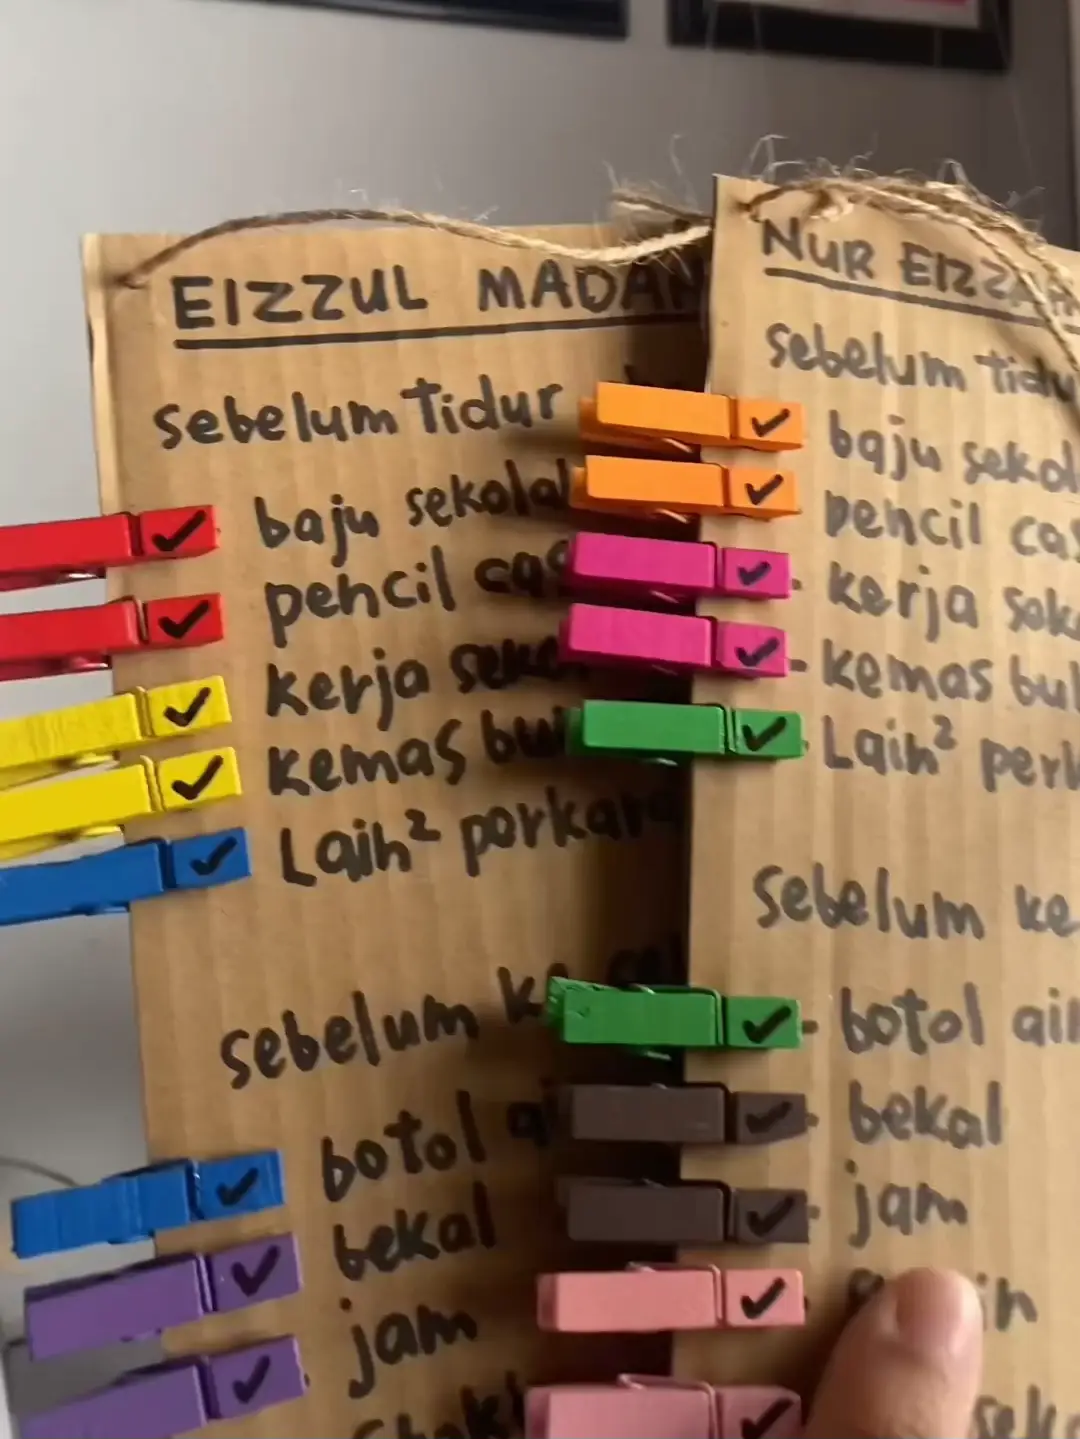 EIZZUL MADAN
sebelum Tidur
baju sekolah
pencil cas
kerja seko
kemas bu
Lain² perkara
sebelum ke
botol a
bekal
jam
NUR EIZZA
sebelum Tidu
baju sekol
pencil cas
kerja seko
kemas bu
Lain² perk
sebelum ke
botol air
bekal
jam